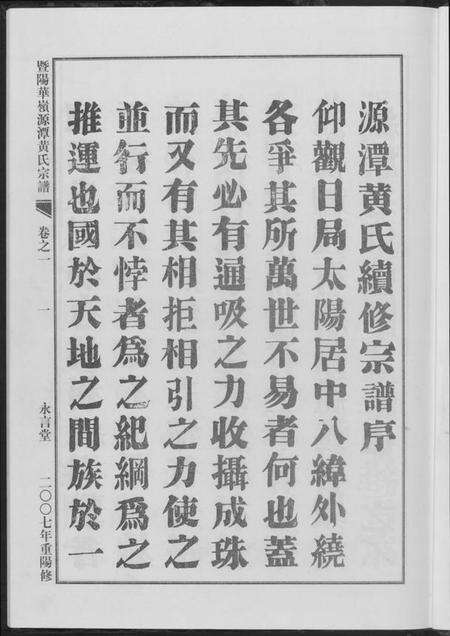 源潭黄氏續修宗譜序
仰觀日局太陽居中八緯外繞
各爭其所萬世不易者何也蓋
其先必有通吸之力收攝成珠
而又有其相拒相引之力使之
並行而不悖者爲之紀綱爲之
推運也國於天地之間族於一
暨陽華嶺源潭黄氏宗譜 卷之一 一 永言堂 二〇〇七年重陽修